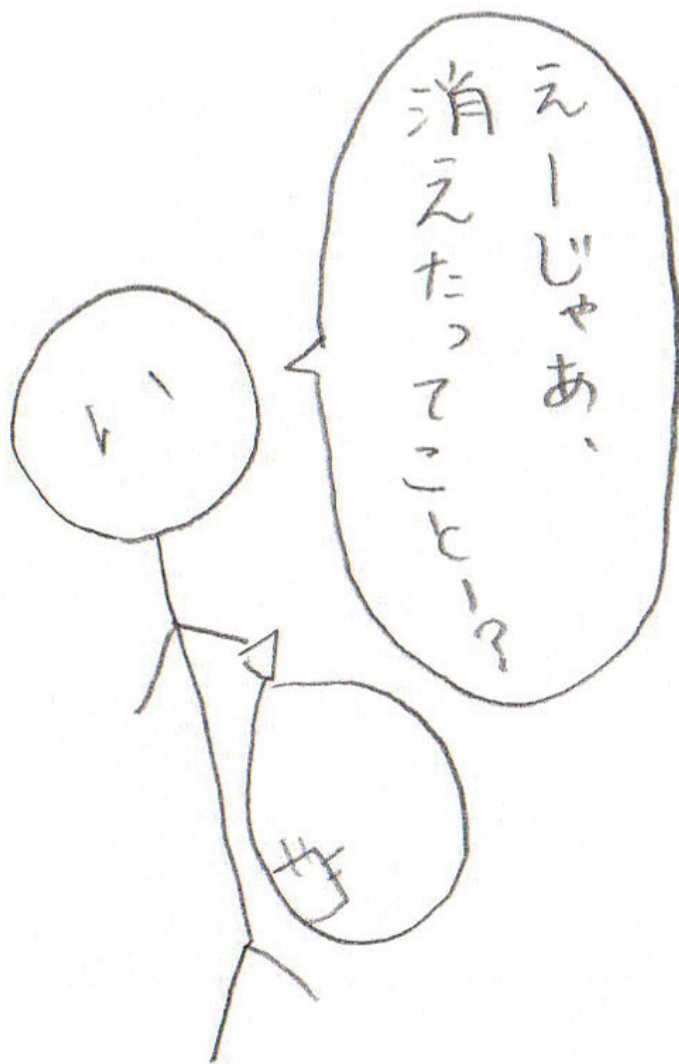 えーじゃあ、
消えたってことー?